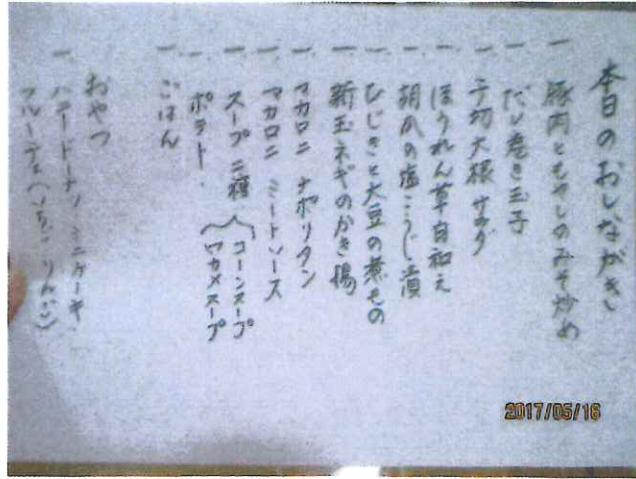 本日のおしながき
一 豚肉ともやしのみそ炒め
一 だし巻き玉子
一 千切大根 サラダ
一 ほうれん草白和え
一 胡瓜の塩こうじ漬
一 ひじきと大豆の煮もの
一 新玉ネギのかき揚
一 マカロニ ナポリタン
一 マカロニ ミートソース
一 スープ二種
コーンスープ
ワカメスープ
一 ポテト
一 ごはん
おやつ
一 ドーナツ ミニケーキ
一 フルーチェ(いちご りんご)
2017/05/16